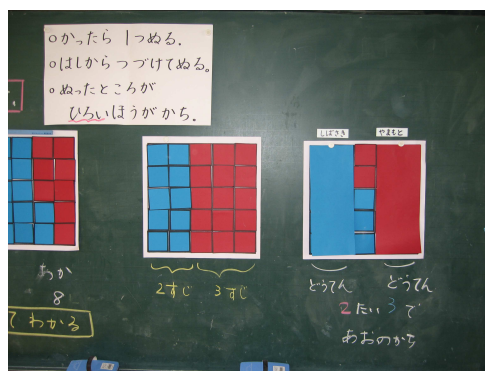 ○かったら 1つぬる.
○はしからつづけてぬる。
○ぬったところが
ひろいほうがかち.
しばさき
やまもと
あか
8
てわかる
2すじ
3すじ
どうてん
どうてん
2たい3で
あおのかち